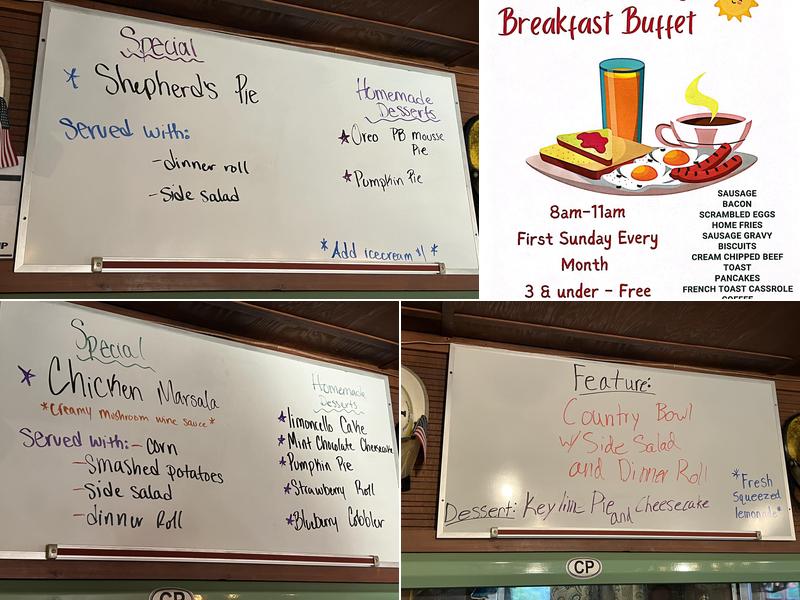 Special
* Shepherd's Pie
Served with:
-dinner roll
-side salad
Homemade
Desserts
★Oreo PB mousse
Pie
★Pumpkin Pie
*Add icecream $1*
Breakfast Buffet
8am-11am
First Sunday Every
Month
3 & under - Free
SAUSAGE
BACON
SCRAMBLED EGGS
HOME FRIES
SAUSAGE GRAVY
BISCUITS
CREAM CHIPPED BEEF
TOAST
PANCAKES
FRENCH TOAST CASSROLE
COFFEE
Special
* Chicken Marsala
*Creamy mushroom wine sauce*
Served with:- corn
-Smashed potatoes
-side salad
-dinner Roll
Homemade
Desserts
★limoncello Cake
★Mint Chocolate Cheesecake
★Pumpkin Pie
★Strawberry Roll
★Bluberry Cobbler
CP
Feature:
Country Bowl
w/ Side Salad
and Dinner Roll
Dessert: Keylime Pie and Cheesecake
*Fresh
Squeezed
lemonade*
CP